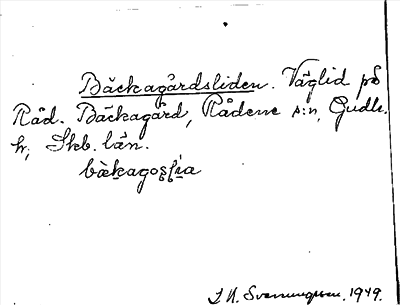 Bäckagårdsliden. Väglid på
Råd. Bäckagård, Rådene s:n, Gudh.
h, Skb. län.
bækagosʃi̱a
J. N. Svenungsson. 1949.